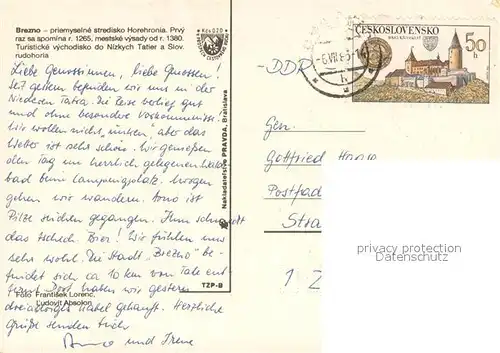 Brezno – priemyselné stredisko Horehronia. Prvý
raz sa spomína r. 1265, mestské výsady od r. 1380.
Turistické východisko do Nízkych Tatier a Slov.
rudohoria
Liebe Genossinnen, liebe Genossen!
Seit gestern befinden wir uns in der
Niederen Tatra. Die Reise verlief gut
und ohne besondere Vorkommnisse.
Wir wollen nicht unken, aber das
Wetter ist sehr schön. Wir genießen
den Tag im herrlich gelegenen Wald-
bad beim Campingplatz. Morgen
gehen wir wandern. Arno ist
Pilze suchen gegangen. Ihm schmeckt
das tschech. Bier! Wir fühlen uns
sehr wohl. Die Stadt "Brezno" be-
findet sich ca 10 km von Tale ent-
fernt. Dort haben wir gestern
dreiadriges Kabel gekauft. Herzliche
Grüße senden Euch
Arno und Irene
Foto František Lorenc,
Ľudovít Absolon
TZP-B
Nakladateľstvo PRAVDA, Bratislava
Kčs 0,20
ČESKOSLOVENSKO
50 h
-6.VII.8
h
DDR
Gen.
Gottfried
Postfach
Stra
privacy protection
Datenschutz
1 2